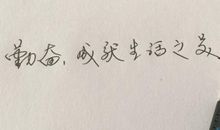 勤奋,成就生活之美